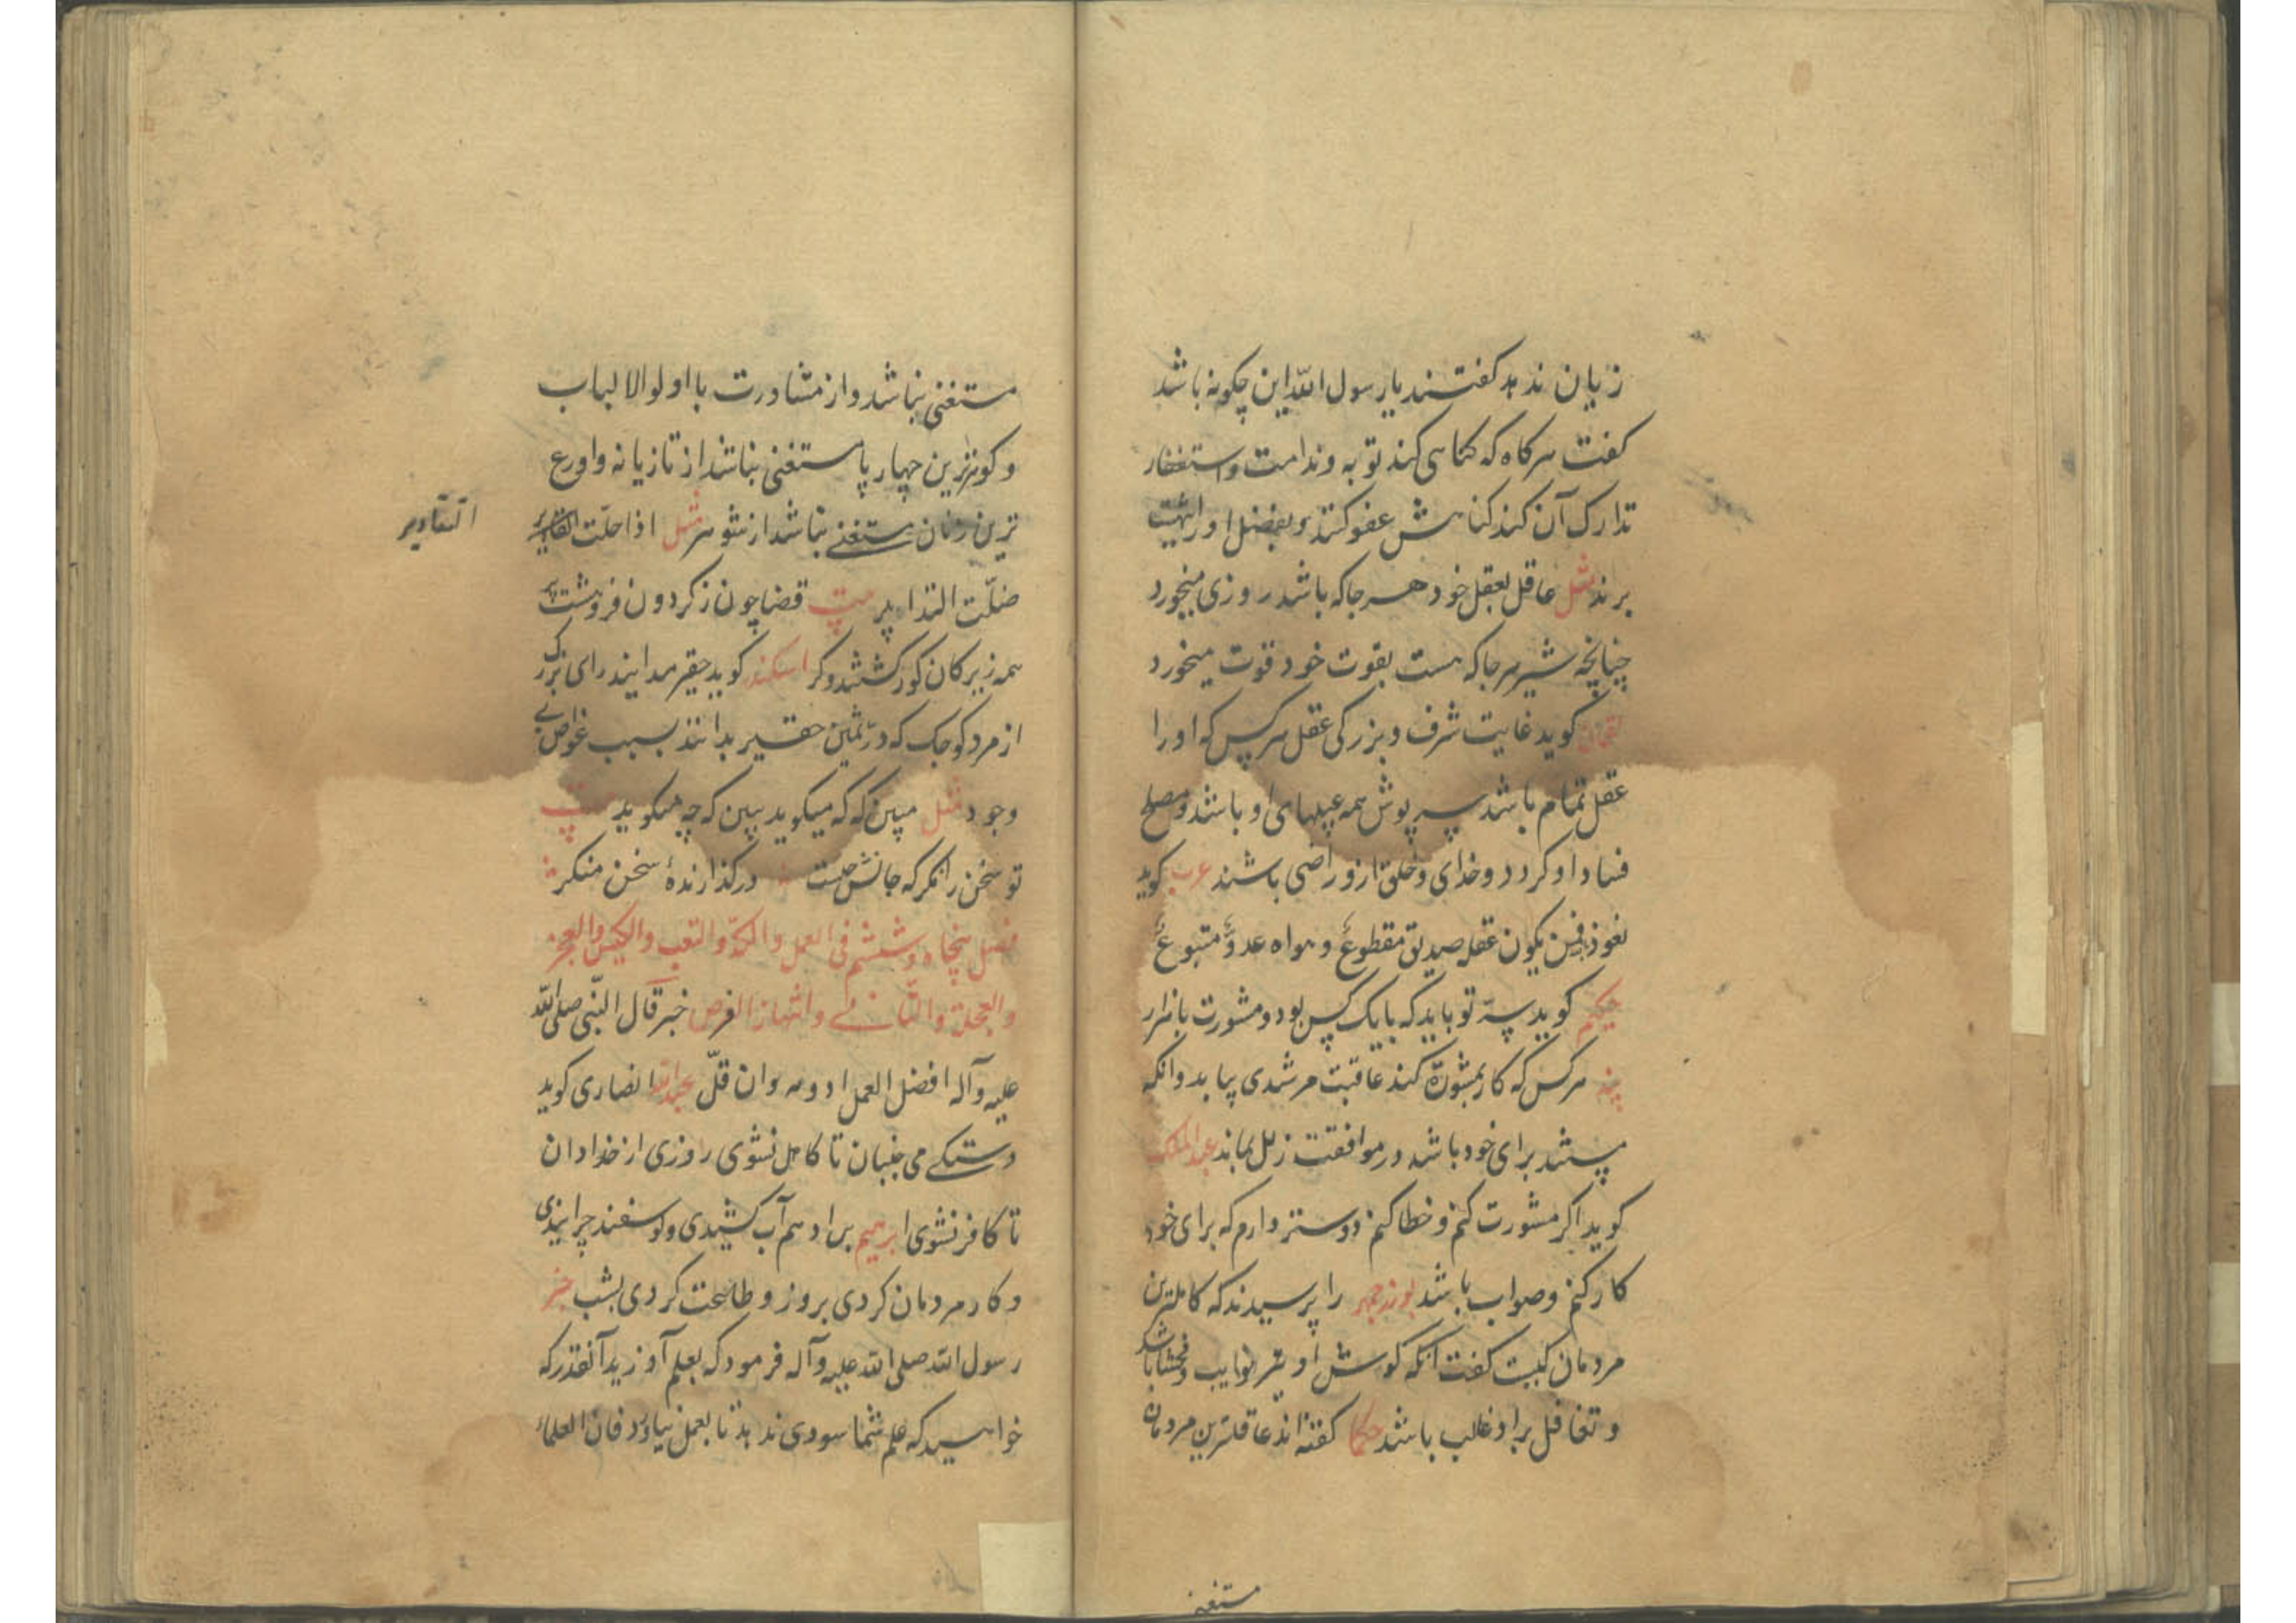 زیان ندهد کفتند یا رسول الله این چکونه باشد
کفت هرکاه که کناهی کند توبه و ندامت و استغفار
تدارک آن کند کناهش عفو کنند و بفضل او را بهشت
برند مثل عاقل بعقل خود هر جا که باشد روزی میخورد
چنانچه شیر هر جا که هست بقوت خود قوت میخورد
لقمان کوید غایت شرف و بزرکی عقل هرکس که او را
عقل تمام باشد سرپوش همه عیبهای او باشد و مصلح
فساد او کردد و خدای و خلق ازو راضی باشند عرب کوید
نعوذ فمن یکون عقله صدیق مقطوع و هواه عدو متبوع
حکیم کوید سر تو باید که با یک کس بود و مشورت با هزار
هرکس که کار بمشورت کند عاقبت مرشدی بیابد و انکه
پسند برای خود باشد در موافقت زلل بماند عبدالملک
کوید اکر مشورت کنم و خطا کنم دوستر دارم که برای خود
کار کنم و صواب باشد بوزرجمهر را پرسیدند که کاملترین
مردمان کیست کفت آنکه کوش او
و تغافل بر او غالب باشد حکما کفته اند عاقلترین مردمان
مستغنی
مستغنی نباشد و از مشاورت با اولو الالباب
و کوهرترین چهارپا مستغنی نباشد از تازیانه و اورع
ترین زنان مستغنی نباشد از شوهر مثل اذا حلّت التقادیر
التقادیر
ضلّت التدابیر بیت قضا چون ز کردون فروهشت پر
همه زیرکان کور کشتند و کر اسکندر کوید حقیر مدانید رای بزرک
از مرد کوچک که در ثمین حقیر بدانند بسبب غواص بی
وجود مثل مبین که که میکوید ببین که چه میکوید بیت
تو سخن را نکر که حالش چیست در کذارنده سخن منکر
فصل پنجاه و ششم فی العمل والکدّ والتعب والکیس والعجز
والعجلة والتأنی وانتهاز الفرص خبر قال النّبی صلی الله
علیه و آله افضل العمل ادومه و ان قلّ عبدالله انصاری کوید
دستکی می جنبان تا کاهل نشوی روزی از خدا دان
تا کافر نشوی ابرهیم بن ادهم آب کشیدی و کوسفند چرانیدی
و کار مردمان کردی بروز و طاعت کردی بشب خبر
رسول الله صلی الله علیه و آله فرمود که بعلم آوزید آنقدر که
خواهید که علم شما سودی ندهد تا بعمل نیاورد فان العلماء